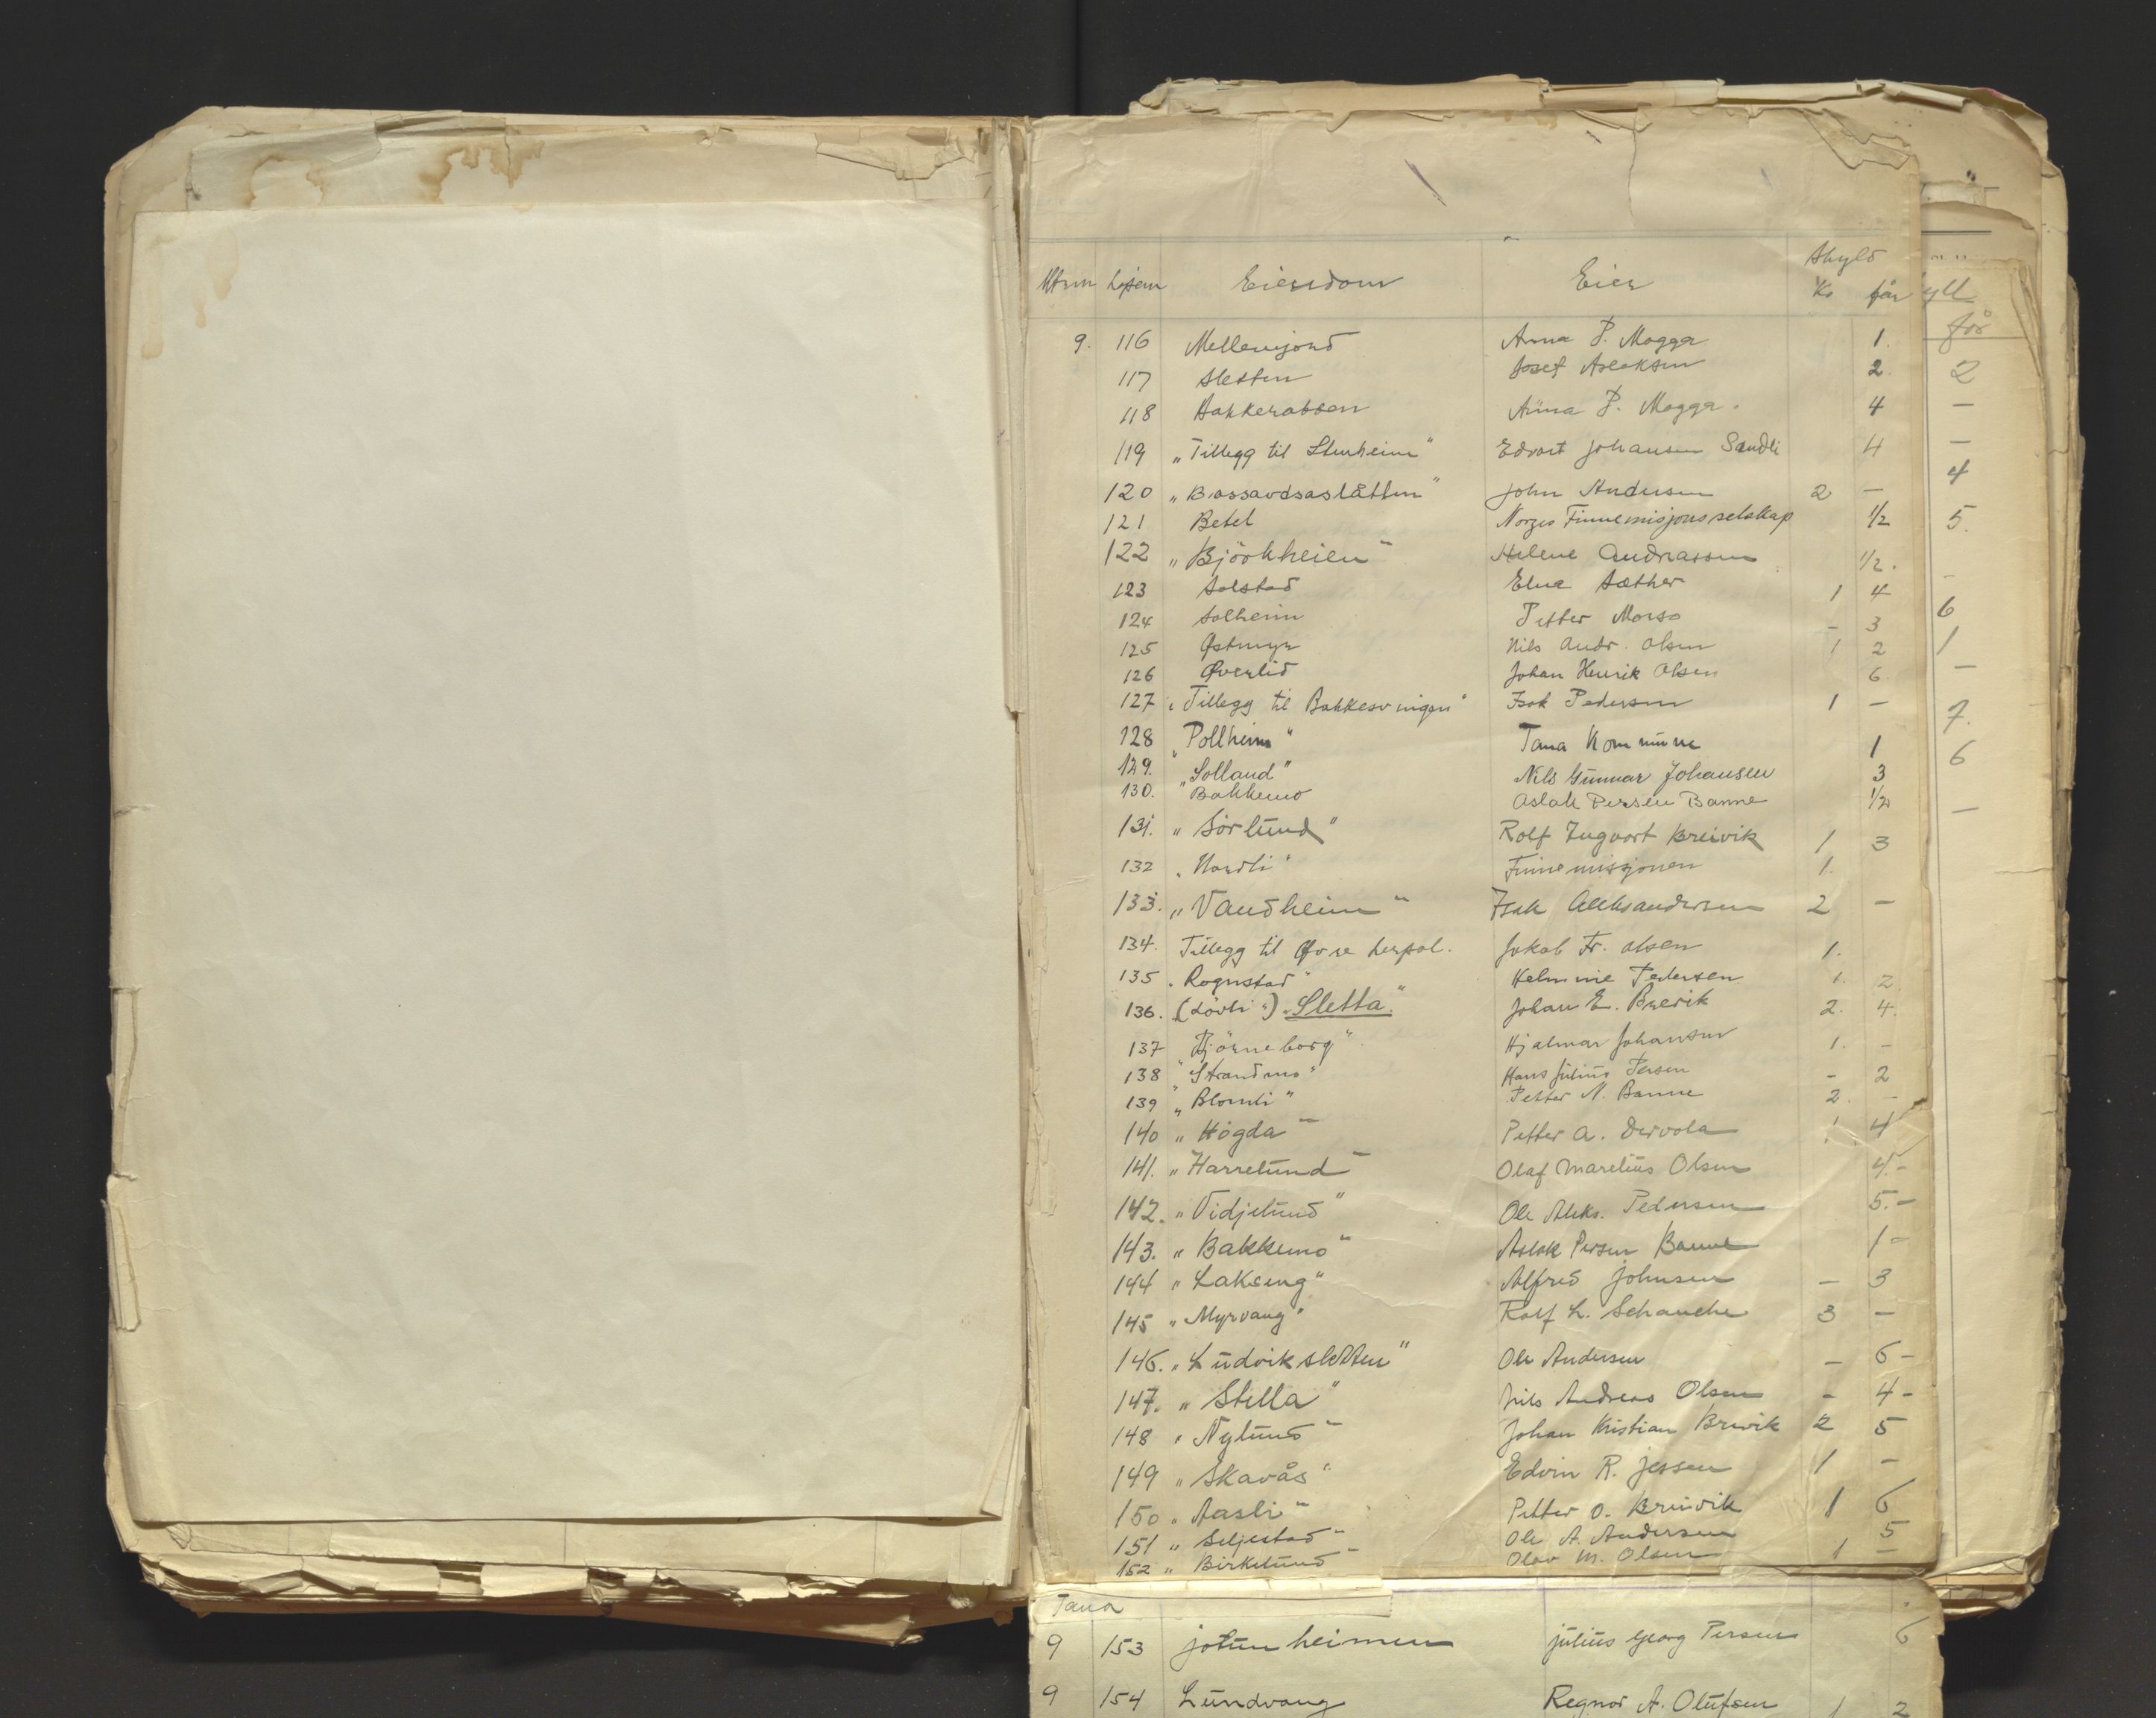 Skyld
Mtrnr Løpenr Eiendom Eier Kr før
9. 116 Mellemjord Anna P. Mogga 1.
117 Sletten Josef Aslaksen 2.
118 Bakkerabben Anna P. Mogga. 4
119 „Tillegg til Stenheim" Edvart Johansen Sandli 4
120 John Andersen 2 —
121 Betel Norges Finnemisjonsselskap 1/2
122 „Björkheien" Helene Andreassen 1/2.
123 Solstad Elna Sæther 1 4
124 Solheim Petter Morso – 3
125 Østmyr Nils Andr. Olsen 1 2
126 Øverlid Johan Henrik Olsen 6
127 „Tillegg til Bakkesvingen" Isak Pedersen 1 –
128 „Pollheim" Tana Kommune 1
129. „Solland" Nils Gunnar Johansen 3
130. "Bakkemo Aslak Persen Banne 1/2
131. „Sörlund" Rolf Ingvart Breivik 1 3
132 „Nordli" Finnemissjonen 1.
133. „Vandheim" Isak Aleksandersen 2 –
134. Tillegg til Øvre Jakob Fr. Olsen 1.
135 „Rognstad" Helmine Pedersen 1. 2
136. (Lövli") „Sletta." Johan E. Brevik 2. 4.
137 „Tjörneborg" Hjalmar Johansen 1. –
138 „Strandmo" Hans Julius Persen – 2
139 „Blomli" Petter N. Banne 2. –
140 „Högda" Petter A. Dervola 1 4
141. „Harrelund" Olaf Marelius Olsen 4.–
142. „Vidjelund" Ole Aleks. Pedersen 5.–
143. „Bakkemo" Aslak Persen Banne 1 –
144 „Lakseng" Alfred Johnsen – 3
145 „Myrvang" Rolf L. Schanche 3 –
146. „Ludviksletten" Ole Andersen – 6 –
147. „Stella" Nils Andreas Olsen – 4 –
148 „Nylund" Johan Kristian Brevik 2 5
149 „Skavås" Edvin R. Jessen 1 –
150 „Aasli" Petter O. Breivik 1 6
151 „Seljestad" Ole A. Andersen 5
152 „Birkelund" Olav M. Olsen 1 –
Tana
9 153 Jotunheimen Julius Georg Persen 6
9 154 Lundvang Regnor A. Olufsen 1 2
yll
før
2
–
–
4
5.
–
6
1
–
7.
6
–